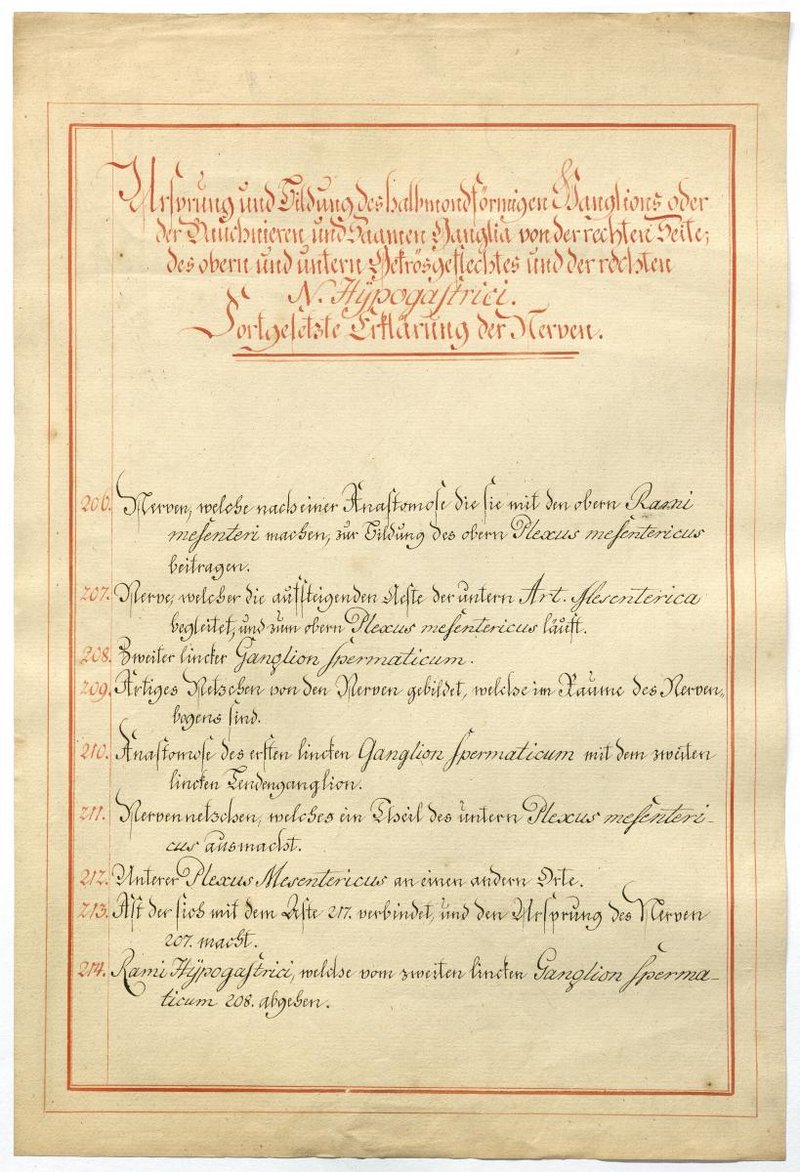 Ursprung und Bildung des halbmondförmigen Ganglions oder
der Bauchnieren und Saamen Ganglia von der rechten Seite;
des obern und untern Gekrösgeflechtes und der rechten
N. Hÿpogastrici.
Fortgesetzte Erklärung der Nerven.
206. Nerven, welche nach einer Anastomose die sie mit den obern Rami
mesenteri machen, zur Bildung des obern Plexus mesentericus
beitragen.
207. Nerve, welcher die aufsteigenden Aeste der untern Art. Mesenterica
begleitet, und zum obern Plexus mesentericus läuft.
208. Zweiter lincker Ganglion spermaticum.
209. Artiges Netzchen von den Nerven gebildet, welche im Raume des Nerven-
bogens sind.
210. Anastomose des ersten lincken Ganglion spermaticum mit dem zweiten
lincken Lendenganglion.
211. Nervennetzchen, welches ein Theil des untern Plexus mesenteri-
cus ausmacht.
212. Unterer Plexus Mesentericus an einen andern Orte.
213. Ast der sich mit dem Aste 217. verbindet, und den Ursprung des Nerven
207. macht.
214. Rami Hÿpogastrici, welche vom zweiten lincken Ganglion sperma-
ticum 208. abgehen.